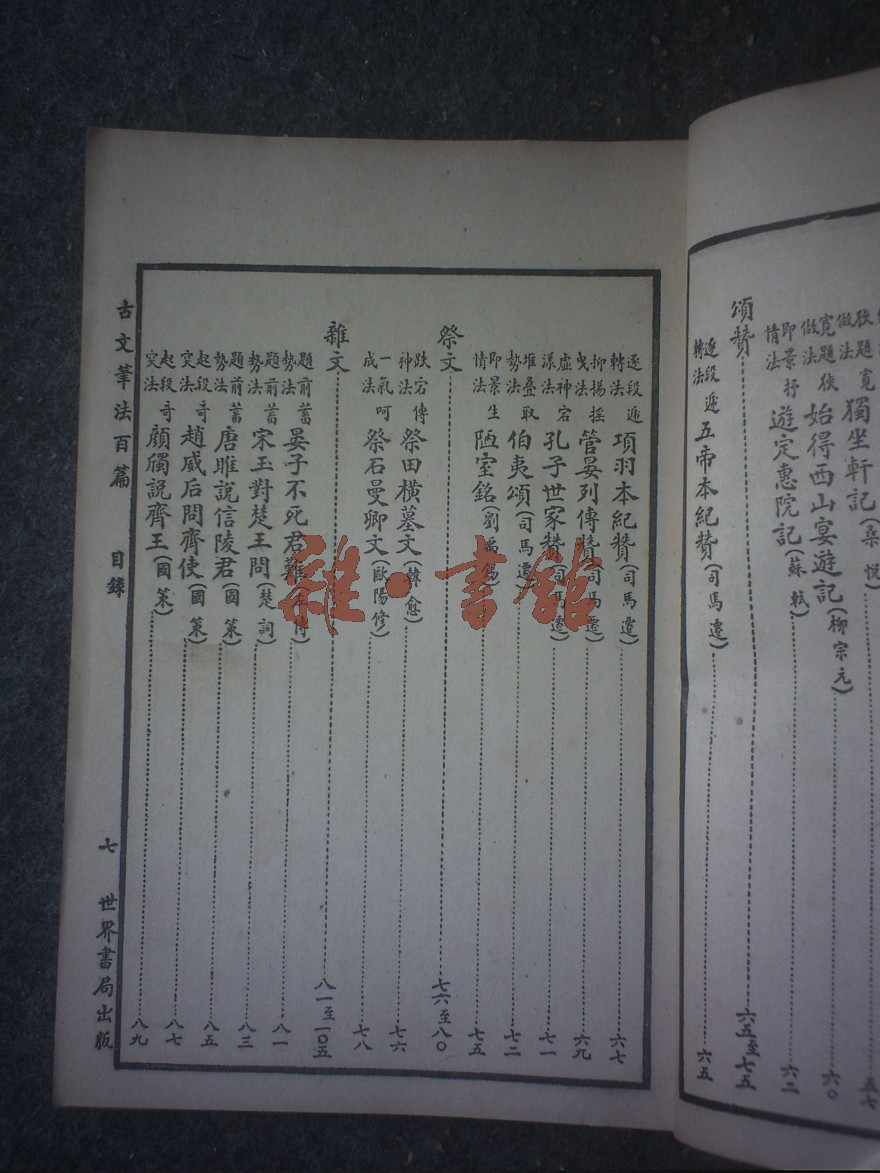 做法 狹題寬 獨坐軒記(桑悅) 五七
做法 寬題狹 始得西山宴遊記(柳宗元) 六〇
情法 即景抒 遊定惠院記(蘇軾) 六二
頌贊 六五至七五
逐段遞轉法 五帝本紀贊(司馬遷) 六五
逐段遞轉法 項羽本紀贊(司馬遷) 六七
抑揚搖曳法 管晏列傳贊(司馬遷) 六九
虛神宕漾法 孔子世家贊(司馬遷) 七一
堆疊取勢法 伯夷頌(司馬遷) 七二
即景生情法 陋室銘(劉禹錫) 七五
祭文 七六至八〇
跌宕傳神法 祭田橫墓文(韓愈) 七六
一氣呵成法 祭石曼卿文(歐陽修) 七八
雜文 八一至一〇五
題前蓄勢法 晏子不死君難(左傳) 八一
題前蓄勢法 宋玉對楚王問(楚詞) 八三
題前蓄勢法 唐雎說信陵君(國策) 八五
起段奇突法 趙威后問齊使(國策) 八七
起段奇突法 顏斶說齊王(國策) 八九
古文筆法百篇 目錄 七 世界書局出版
雜·書館